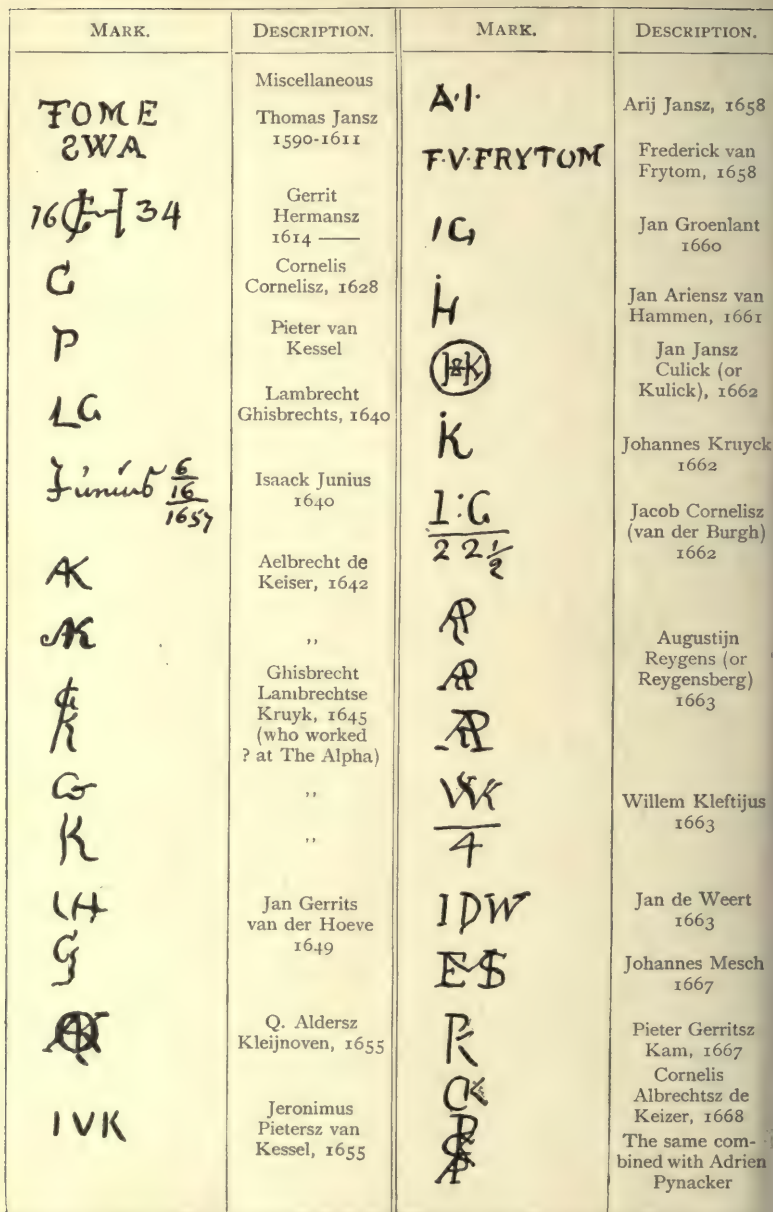 MARK.
DESCRIPTION.
Miscellaneous
TOME
SWA
Thomas Jansz
1590-1611
16 34
Gerrit
Hermansz
1614 ——
C
Cornelis
Cornelisz, 1628
P
Pieter van
Kessel
LG
Lambrecht
Ghisbrechts, 1640
Junius 6
16
1657
Isaack Junius
1640
AK
Aelbrecht de
Keiser, 1642
AK
,,
Ghisbrecht
Lambrechtse
Kruyk, 1645
(who worked
? at The Alpha)
G
K
G
,,
K
,,
IH
G
Jan Gerrits
van der Hoeve
1649
Q. Aldersz
Kleijnoven, 1655
IVK
Jeronimus
Pietersz van
Kessel, 1655
MARK.
DESCRIPTION.
A·I·
Arij Jansz, 1658
F·V·FRYTOM
Frederick van
Frytom, 1658
IG
Jan Groenlant
1660
Jan Ariensz van
Hammen, 1661
Jan Jansz
Culick (or
Kulick), 1662
Johannes Kruyck
1662
I:C
2 2 1/2
Jacob Cornelisz
(van der Burgh)
1662
AR
AR
AR
Augustijn
Reygens (or
Reygensberg)
1663
WK
4
Willem Kleftijus
1663
IDW
Jan de Weert
1663
Johannes Mesch
1667
PK
Pieter Gerritsz
Kam, 1667
CK
Cornelis
Albrechtsz de
Keizer, 1668
The same com-
bined with Adrien
Pynacker